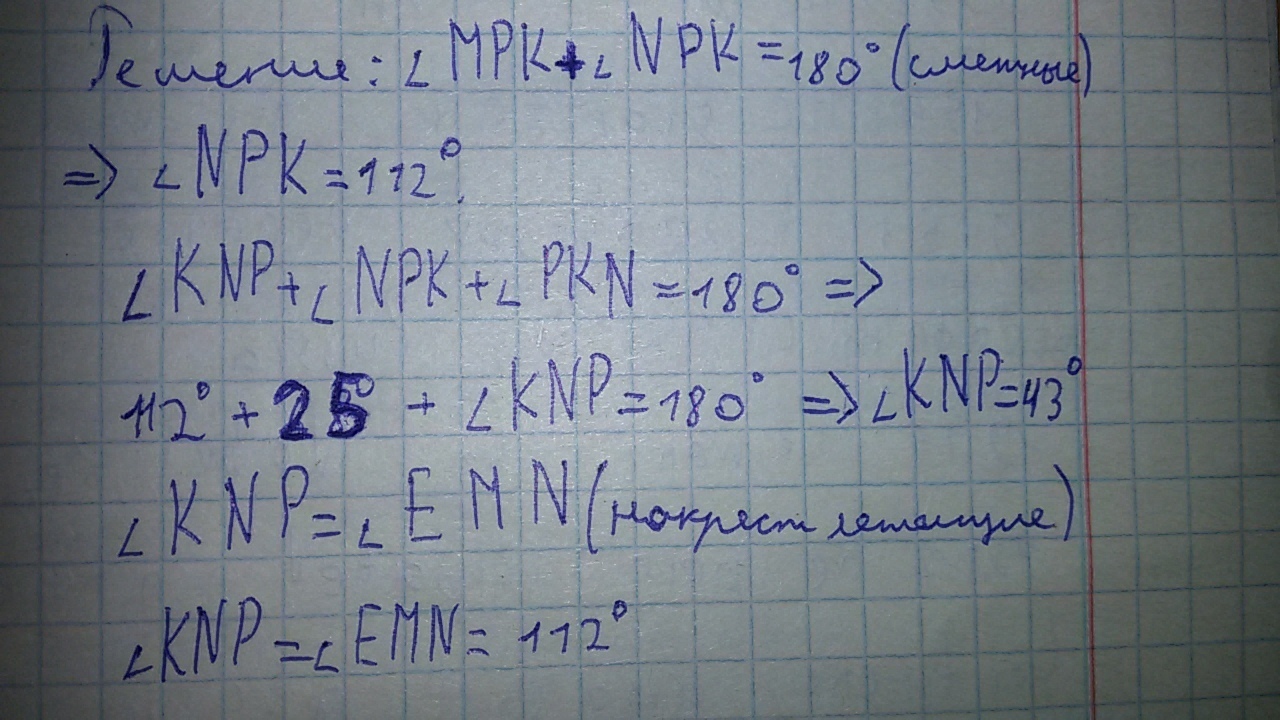 Решение: ∠MPK + ∠NPK = 180° (смежные)
=> ∠NPK = 112°.
∠KNP + ∠NPK + ∠PKN = 180° =>
112° + 25° + ∠KNP = 180° => ∠KNP = 43°
∠KNP = ∠EMN (накрест лежащие)
∠KNP = ∠EMN = 112°